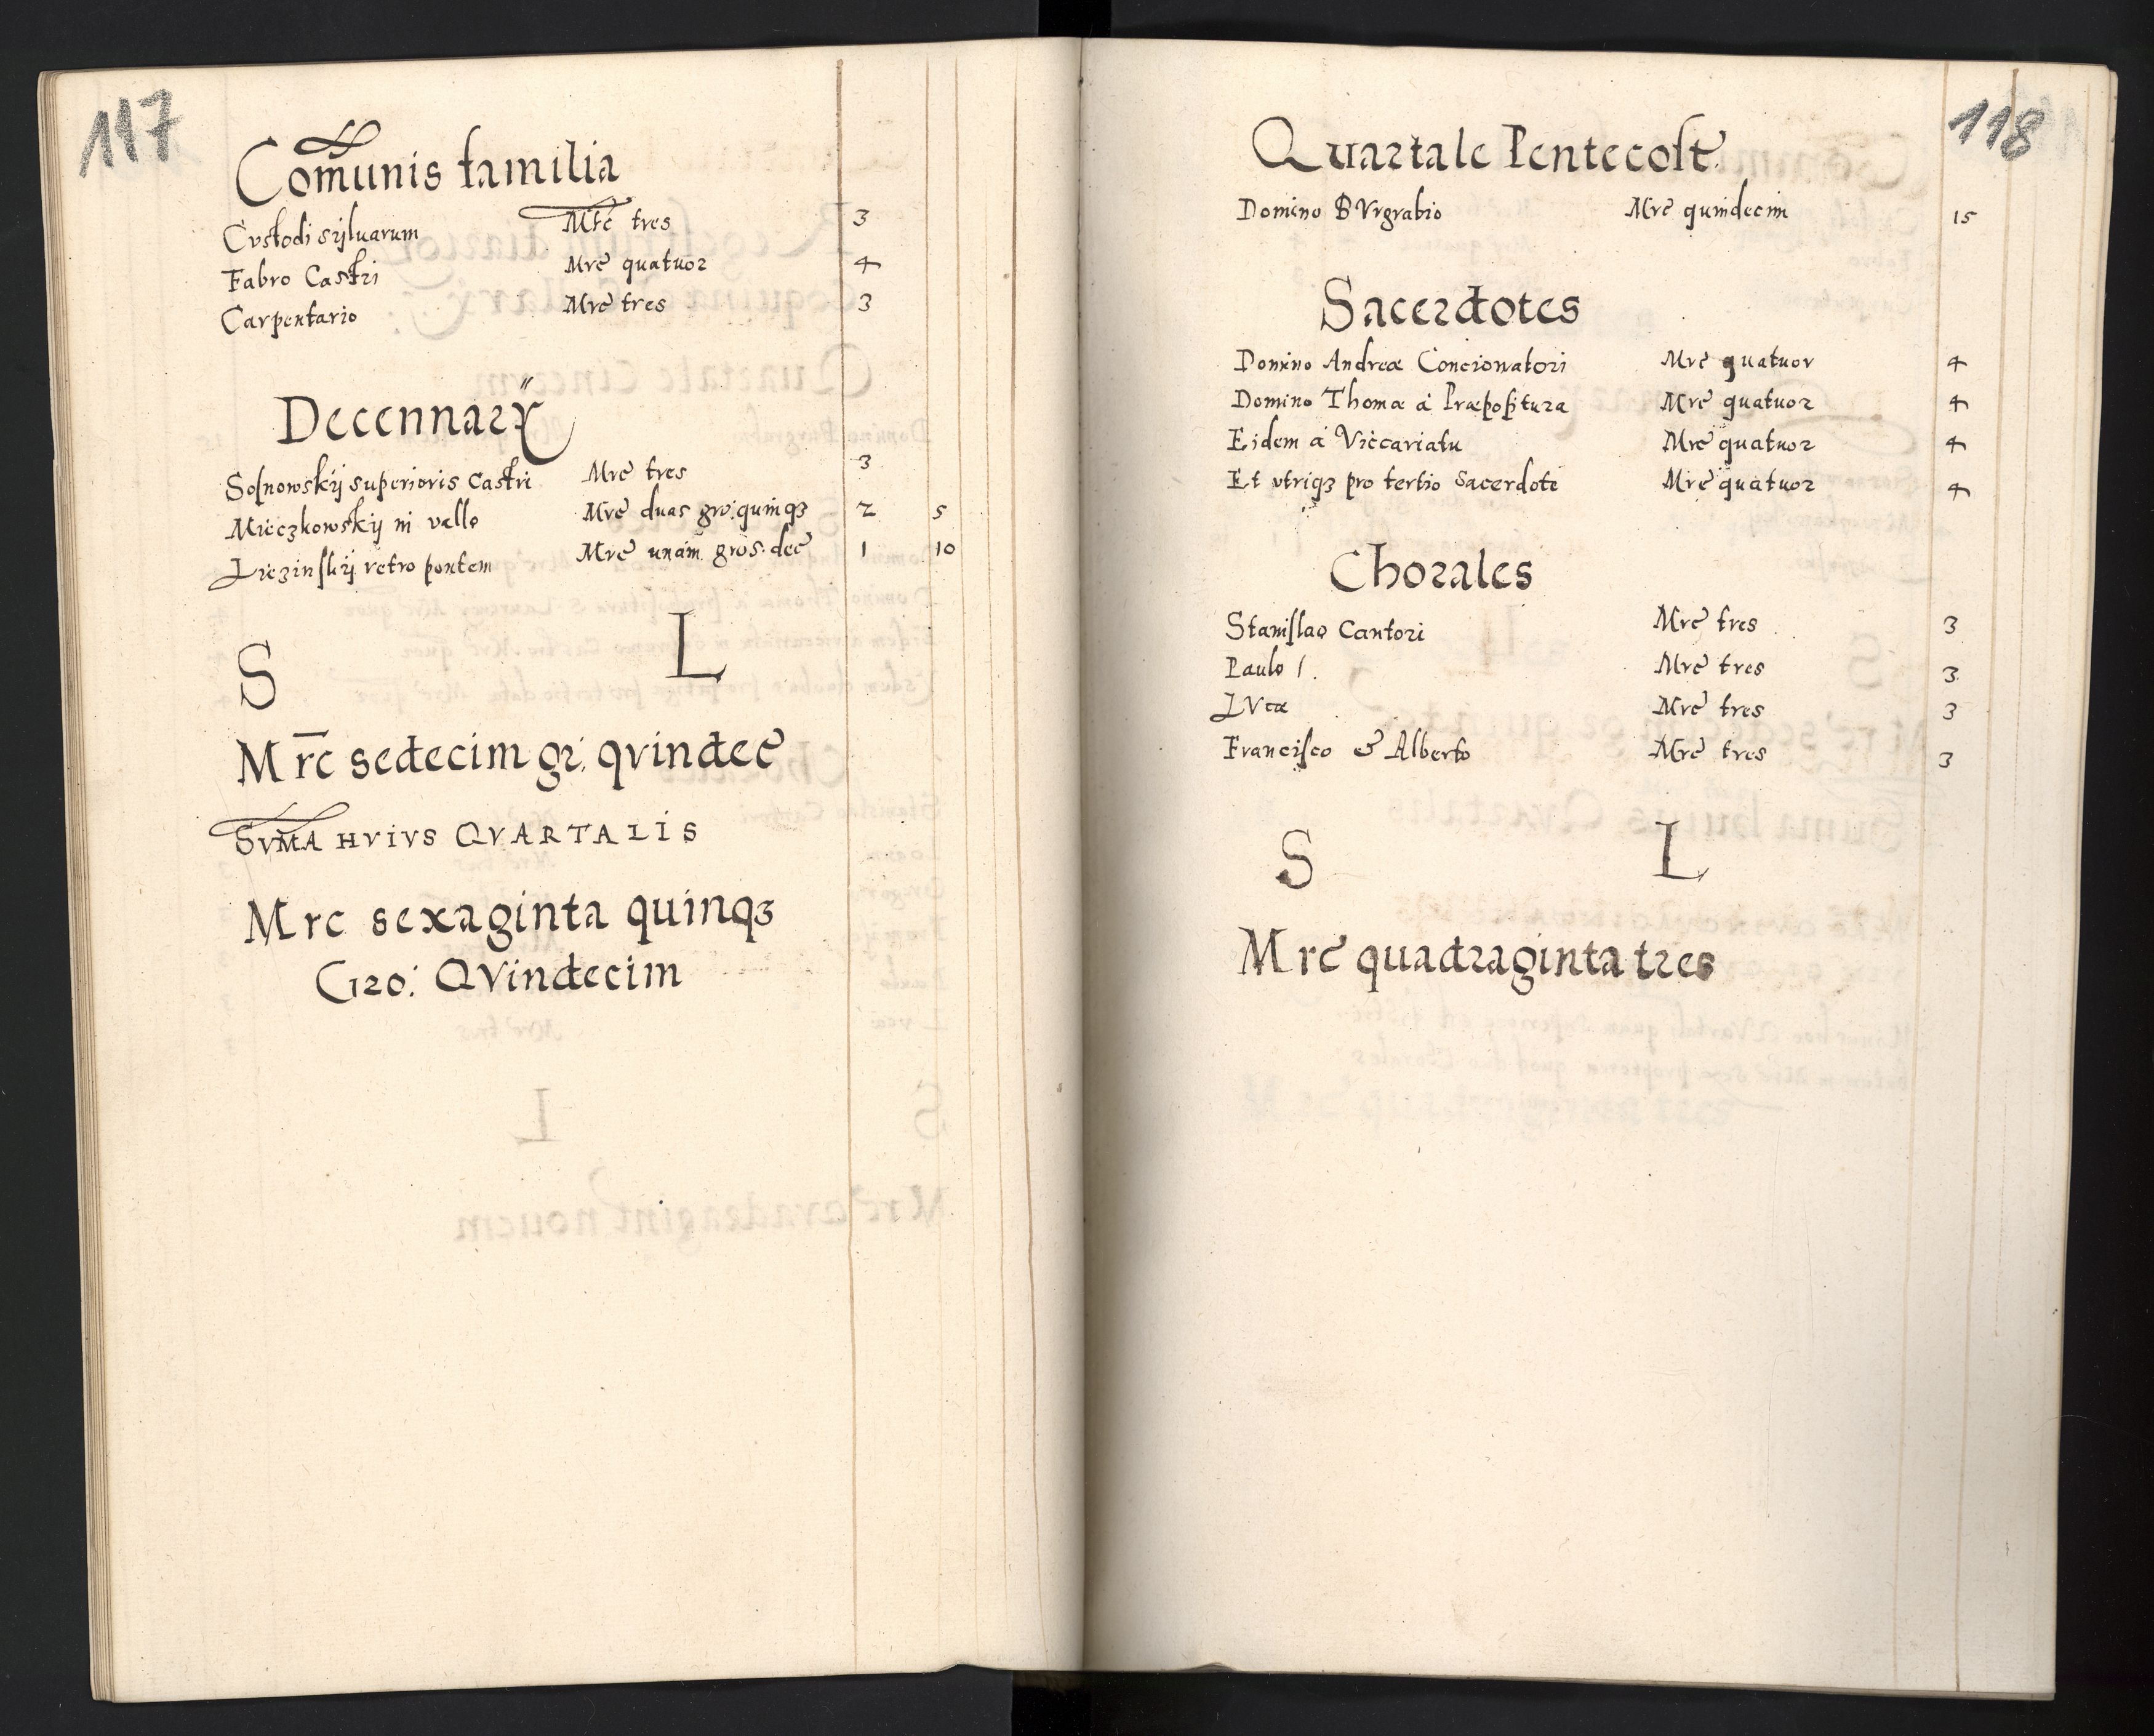 117
Com̄unis familia
Cvstodi sÿluarum Mrc tres 3
Fabro Castri Mrc quatuor 4
Carpentario Mrc tres 3
Decennarÿ
Sosnowskÿ superioris Castri Mrc tres 3
Mieczkowskÿ in vallo Mrc duas gro: quinqȝ 2 5
Mrc unam gros: dec 1 10
retro pontem
S L
Mr̄c sedecim gr: qvindec
SVMA HVIVS QVARTALIS
Mrc sexaginta quinqȝ
Gro: QVindecim
118
Quartale Pentecost
Domino BVrgrabio Mrc quindecim 15
Sacerdotes
Domino Andreæ Concionatori Mrc quatuor 4
Domino Thomæ á Præpositura Mrc quatuor 4
Eidem á Viccariatu Mrc quatuor 4
Et vtriqȝ pro tertio Sacerdote Mrc quatuor 4
Chorales
Stanislao Cantori Mrc tres 3
Paulo Mrc tres 3
LVcæ Mrc tres 3
Francisco & Alberto Mrc tres 3
S L
Mrc quadraginta tres